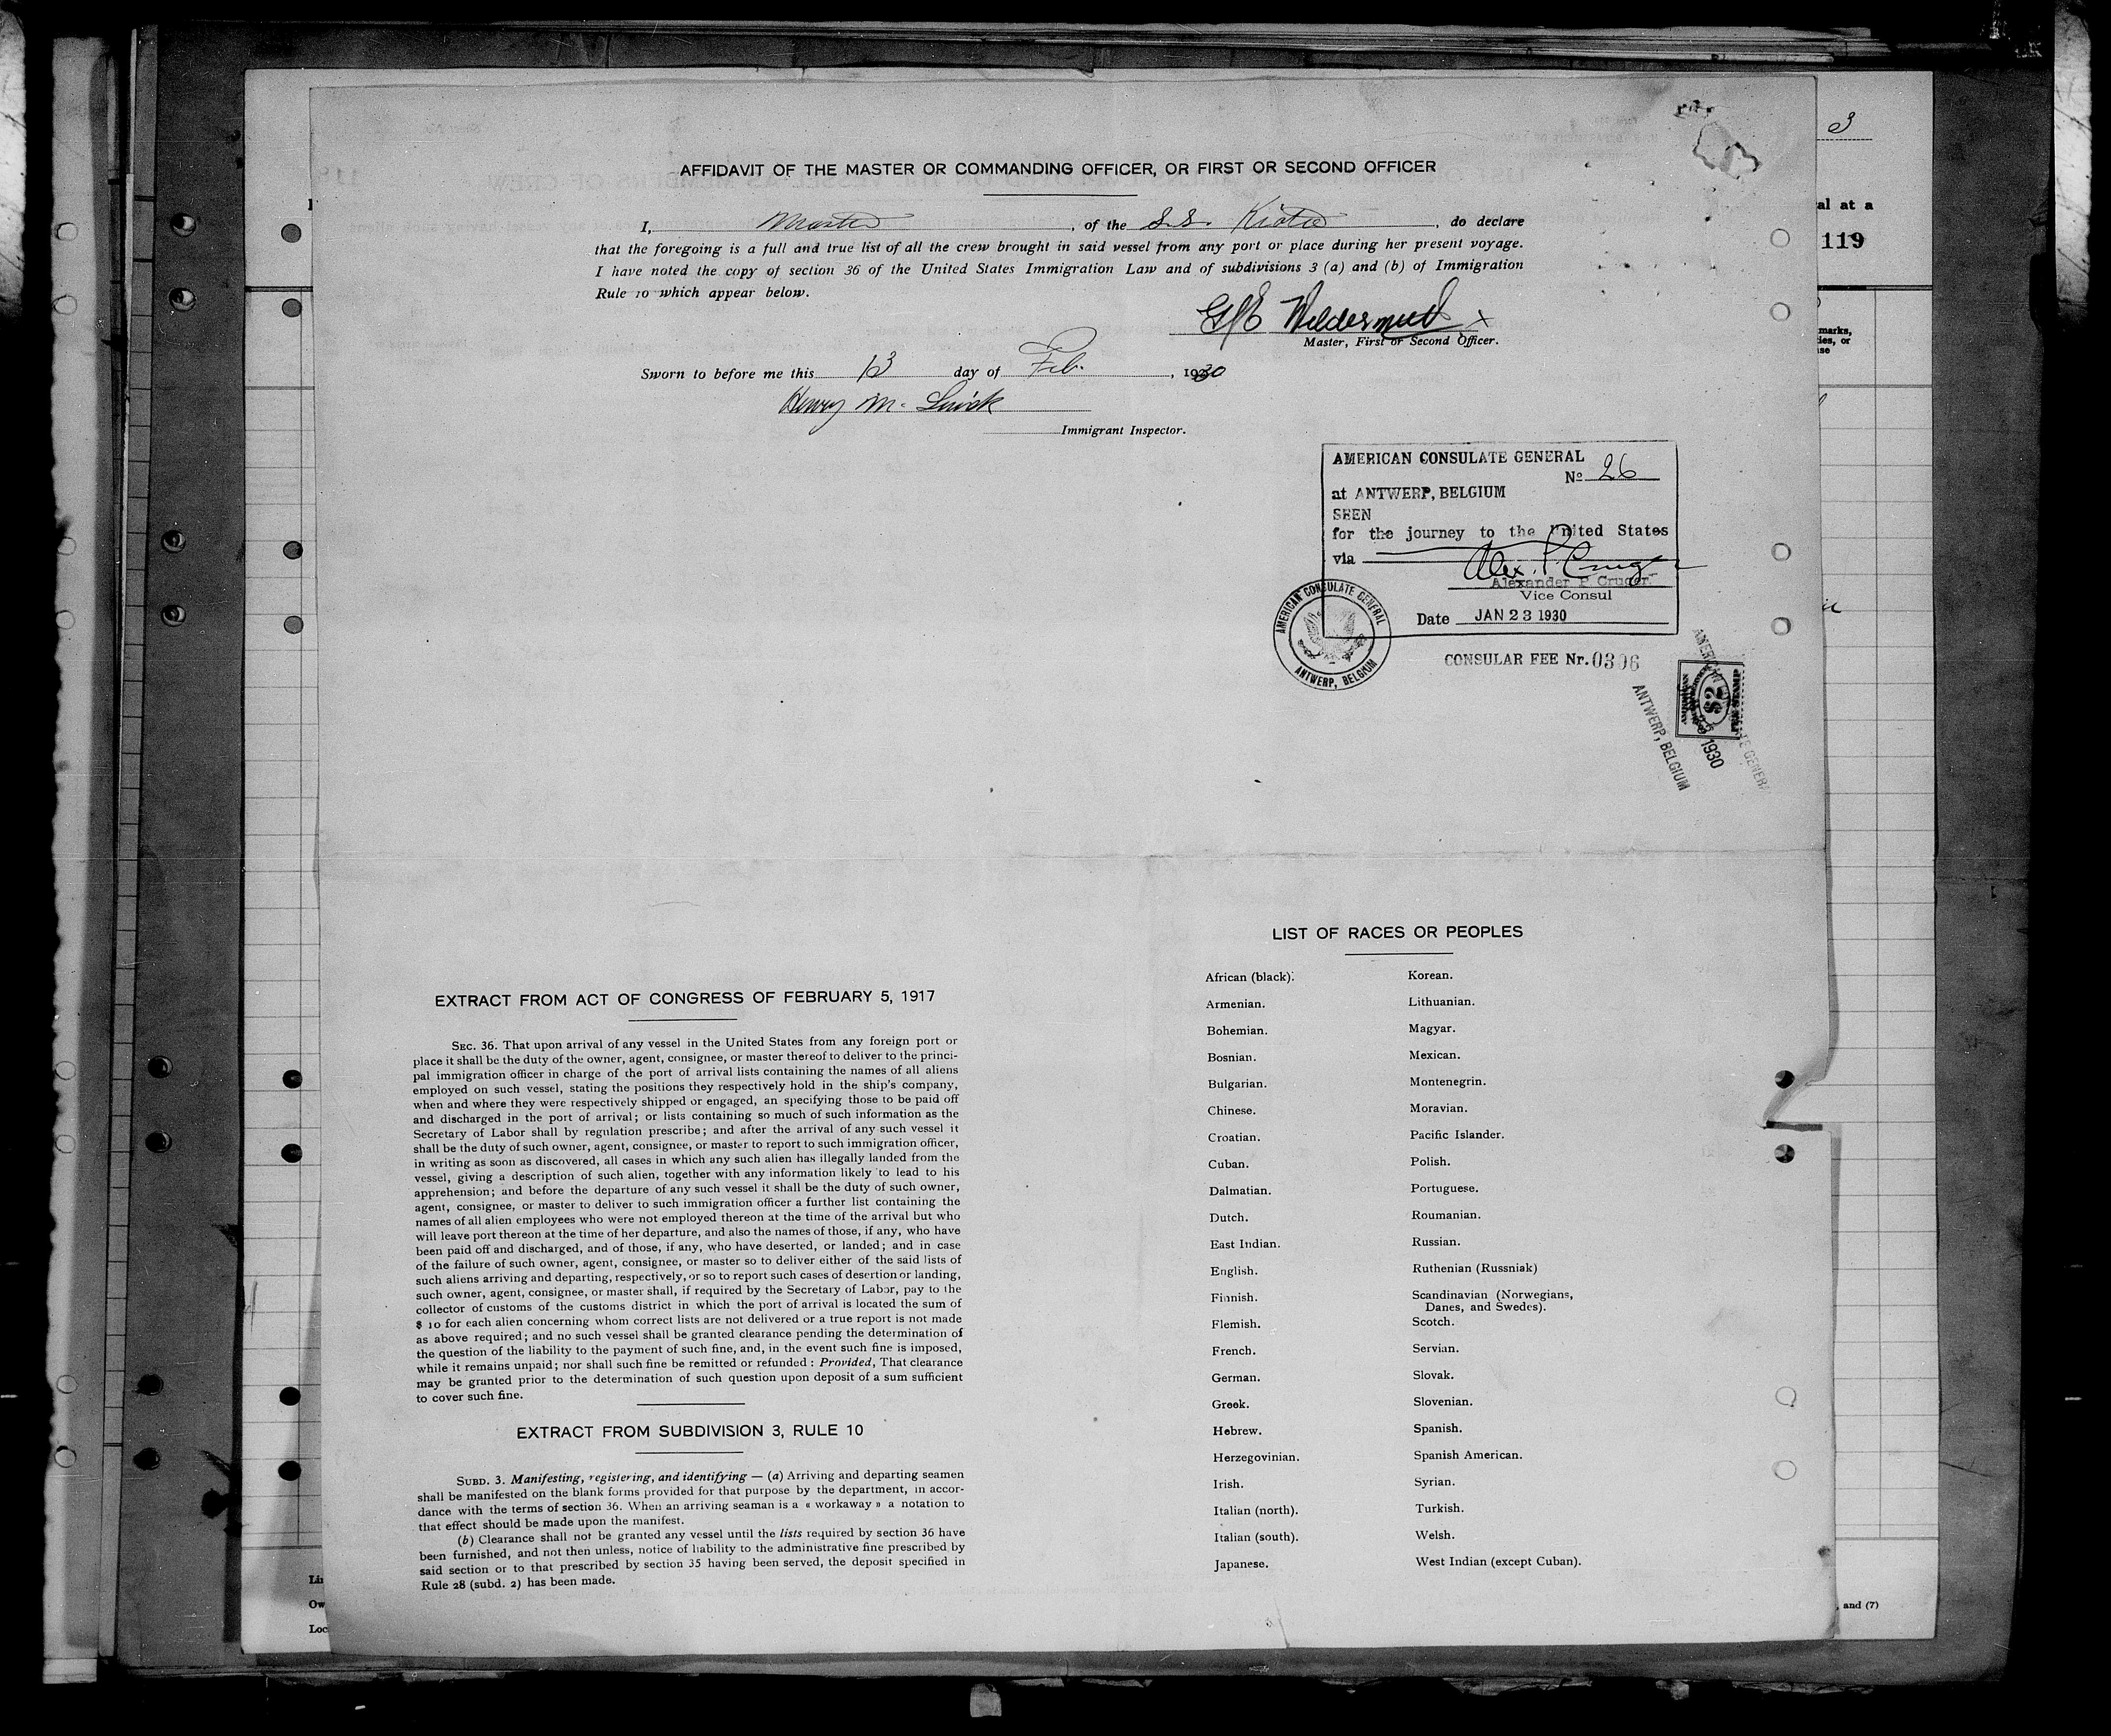 AFFIDAVIT OF THE MASTER OR COMMANDING OFFICER, OR FIRST OR SECOND OFFICER
I, Master, of the S.S. , do declare
that the foregoing is a full and true list of all the crew brought in said vessel from any port or place during her present voyage.
I have noted the copy of section 36 of the United States Immigration Law and of subdivisions 3 (a) and (b) of Immigration
Rule 10 which appear below.
Master, First or Second Officer.
Sworn to before me this 13 day of Feb. , 1930
Henry M.
Immigrant Inspector.
AMERICAN CONSULATE GENERAL
No 26
at ANTWERP, BELGIUM
SEEN
for the journey to the United States
via
Alex. P. Cruger
Alexander P Cruger
Vice Consul
Date JAN 23 1930
AMERICAN CONSULATE GENERAL
ANTWERP, BELGIUM
CONSULAR FEE Nr. 0306
$2
FEE STAMP
1930
ANTWERP, BELGIUM
3
al at a
119
marks,
ies, or
se
LIST OF RACES OR PEOPLES
African (black). Korean.
Armenian. Lithuanian.
Bohemian. Magyar.
Bosnian. Mexican.
Bulgarian. Montenegrin.
Chinese. Moravian.
Croatian. Pacific Islander.
Cuban. Polish.
Dalmatian. Portuguese.
Dutch. Roumanian.
East Indian. Russian.
English. Ruthenian (Russniak)
Finnish. Scandinavian (Norwegians,
Danes, and Swedes).
Flemish. Scotch.
French. Servian.
German. Slovak.
Greek. Slovenian.
Hebrew. Spanish.
Herzegovinian. Spanish American.
Irish. Syrian.
Italian (north). Turkish.
Italian (south). Welsh.
Japanese. West Indian (except Cuban).
EXTRACT FROM ACT OF CONGRESS OF FEBRUARY 5, 1917
SEC. 36. That upon arrival of any vessel in the United States from any foreign port or
place it shall be the duty of the owner, agent, consignee, or master thereof to deliver to the princi-
pal immigration officer in charge of the port of arrival lists containing the names of all aliens
employed on such vessel, stating the positions they respectively hold in the ship's company,
when and where they were respectively shipped or engaged, an specifying those to be paid off
and discharged in the port of arrival; or lists containing so much of such information as the
Secretary of Labor shall by regulation prescribe; and after the arrival of any such vessel it
shall be the duty of such owner, agent, consignee, or master to report to such immigration officer,
in writing as soon as discovered, all cases in which any such alien has illegally landed from the
vessel, giving a description of such alien, together with any information likely to lead to his
apprehension; and before the departure of any such vessel it shall be the duty of such owner,
agent, consignee, or master to deliver to such immigration officer a further list containing the
names of all alien employees who were not employed thereon at the time of the arrival but who
will leave port thereon at the time of her departure, and also the names of those, if any, who have
been paid off and discharged, and of those, if any, who have deserted, or landed; and in case
of the failure of such owner, agent, consignee, or master so to deliver either of the said lists of
such aliens arriving and departing, respectively, or so to report such cases of desertion or landing,
such owner, agent, consignee, or master shall, if required by the Secretary of Labor, pay to the
collector of customs of the customs district in which the port of arrival is located the sum of
$ 10 for each alien concerning whom correct lists are not delivered or a true report is not made
as above required; and no such vessel shall be granted clearance pending the determination of
the question of the liability to the payment of such fine, and, in the event such fine is imposed,
while it remains unpaid; nor shall such fine be remitted or refunded : Provided, That clearance
may be granted prior to the determination of such question upon deposit of a sum sufficient
to cover such fine.
EXTRACT FROM SUBDIVISION 3, RULE 10
SUBD. 3. Manifesting, registering, and identifying — (a) Arriving and departing seamen
shall be manifested on the blank forms provided for that purpose by the department, in accor-
dance with the terms of section 36. When an arriving seaman is a « workaway » a notation to
that effect should be made upon the manifest.
(b) Clearance shall not be granted any vessel until the lists required by section 36 have
been furnished, and not then unless, notice of liability to the administrative fine prescribed by
said section or to that prescribed by section 35 having been served, the deposit specified in
Rule 28 (subd. 2) has been made.
Lin
Ow
Loc
, and (7)